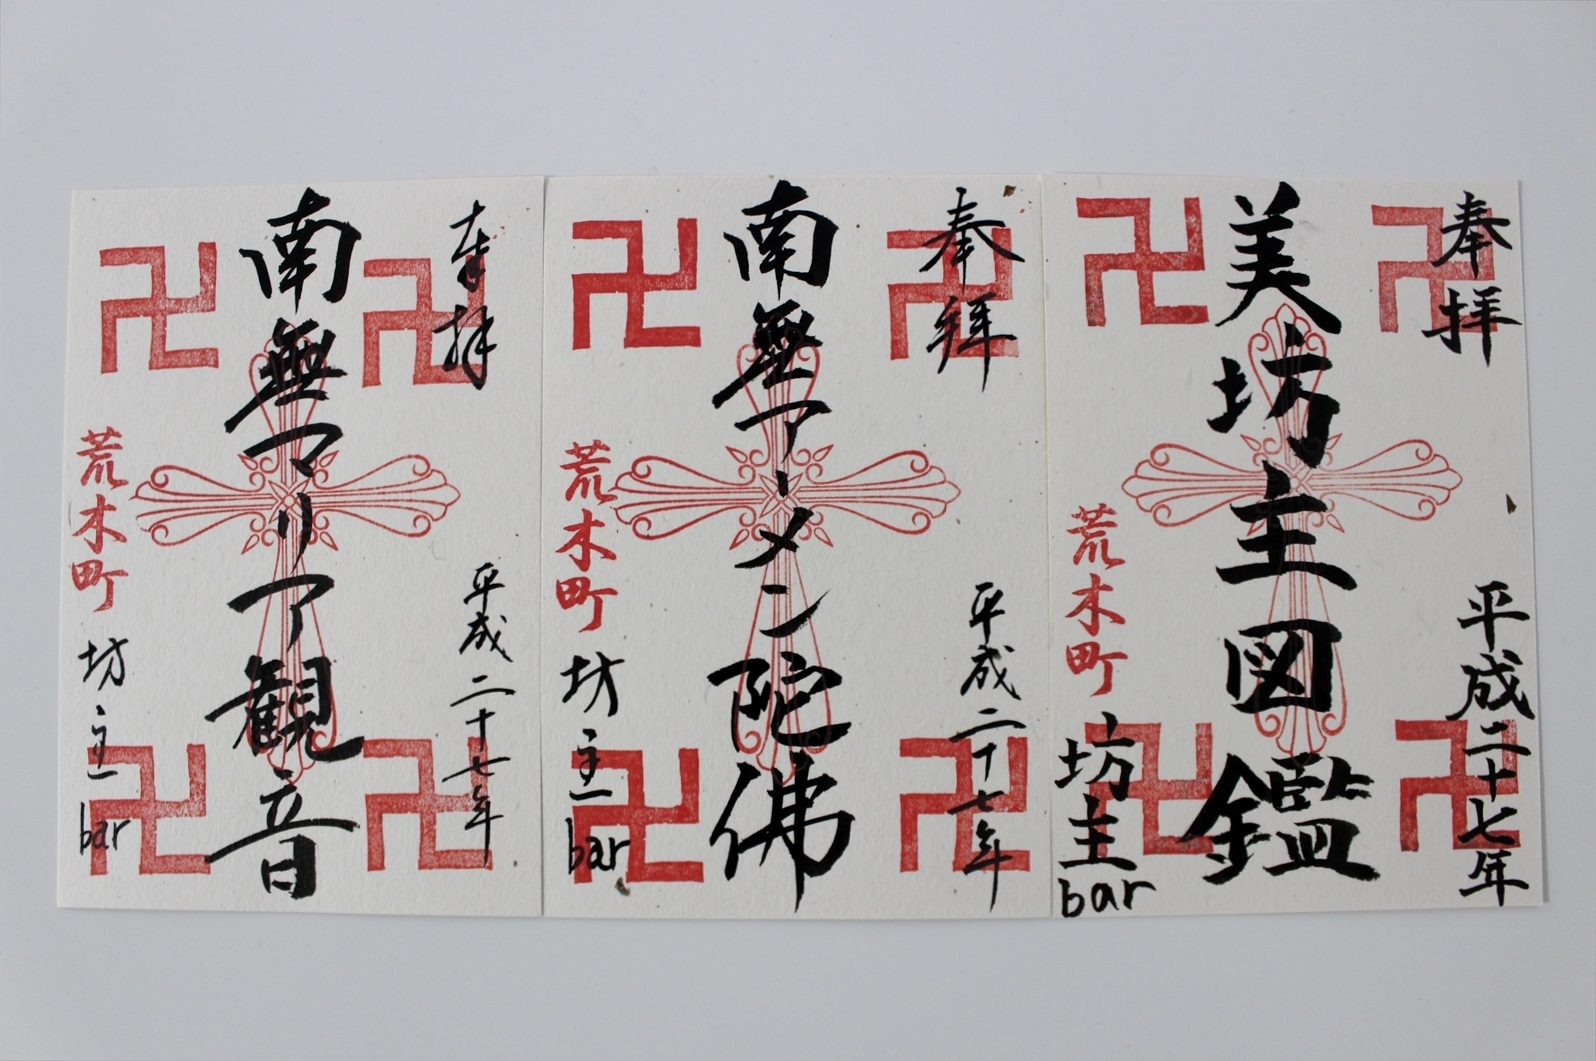 奉拝
美坊主図鑑
平成二十七年
荒木町
坊主bar
奉拝
南無アーメン陀佛
平成二十七年
荒木町
坊主bar
奉拝
南無マリア観音
平成二十七年
荒木町
坊主bar